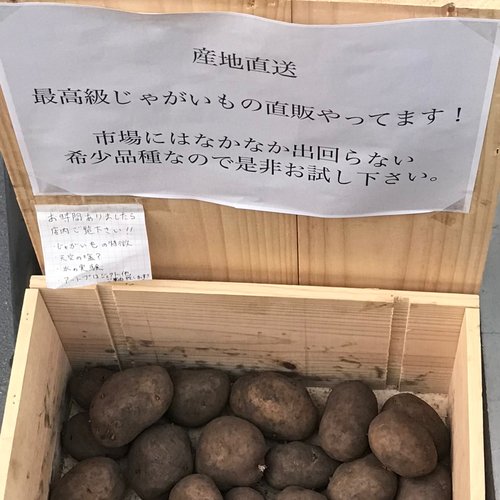 産地直送
最高級じゃがいもの直販やってます!
市場にはなかなか出回らない
希少品種なので是非お試し下さい。
お時間ありましたら
店内ご覧下さい!!
じゃがいもの特徴
天空の塩?
水の実験